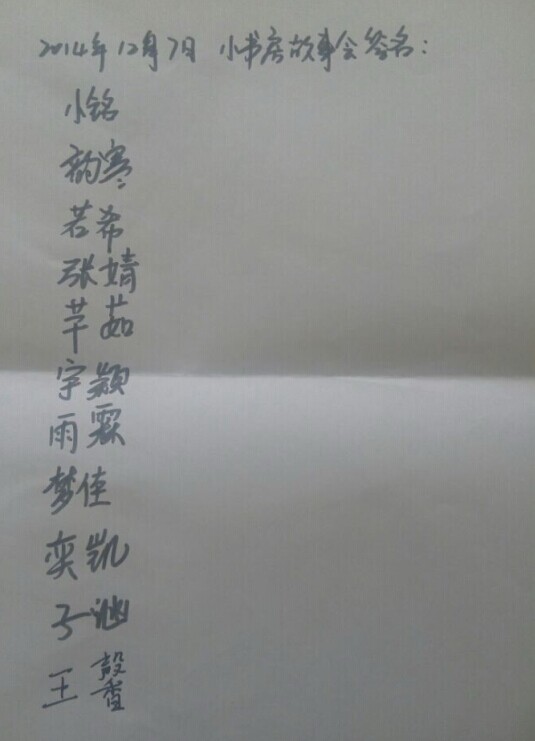 2014年12月7日 小书房故事会签名：
小铭
韵寒
若希
张婧
芊茹
宇颖
雨霖
梦佳
奕凯
子涵
王馨